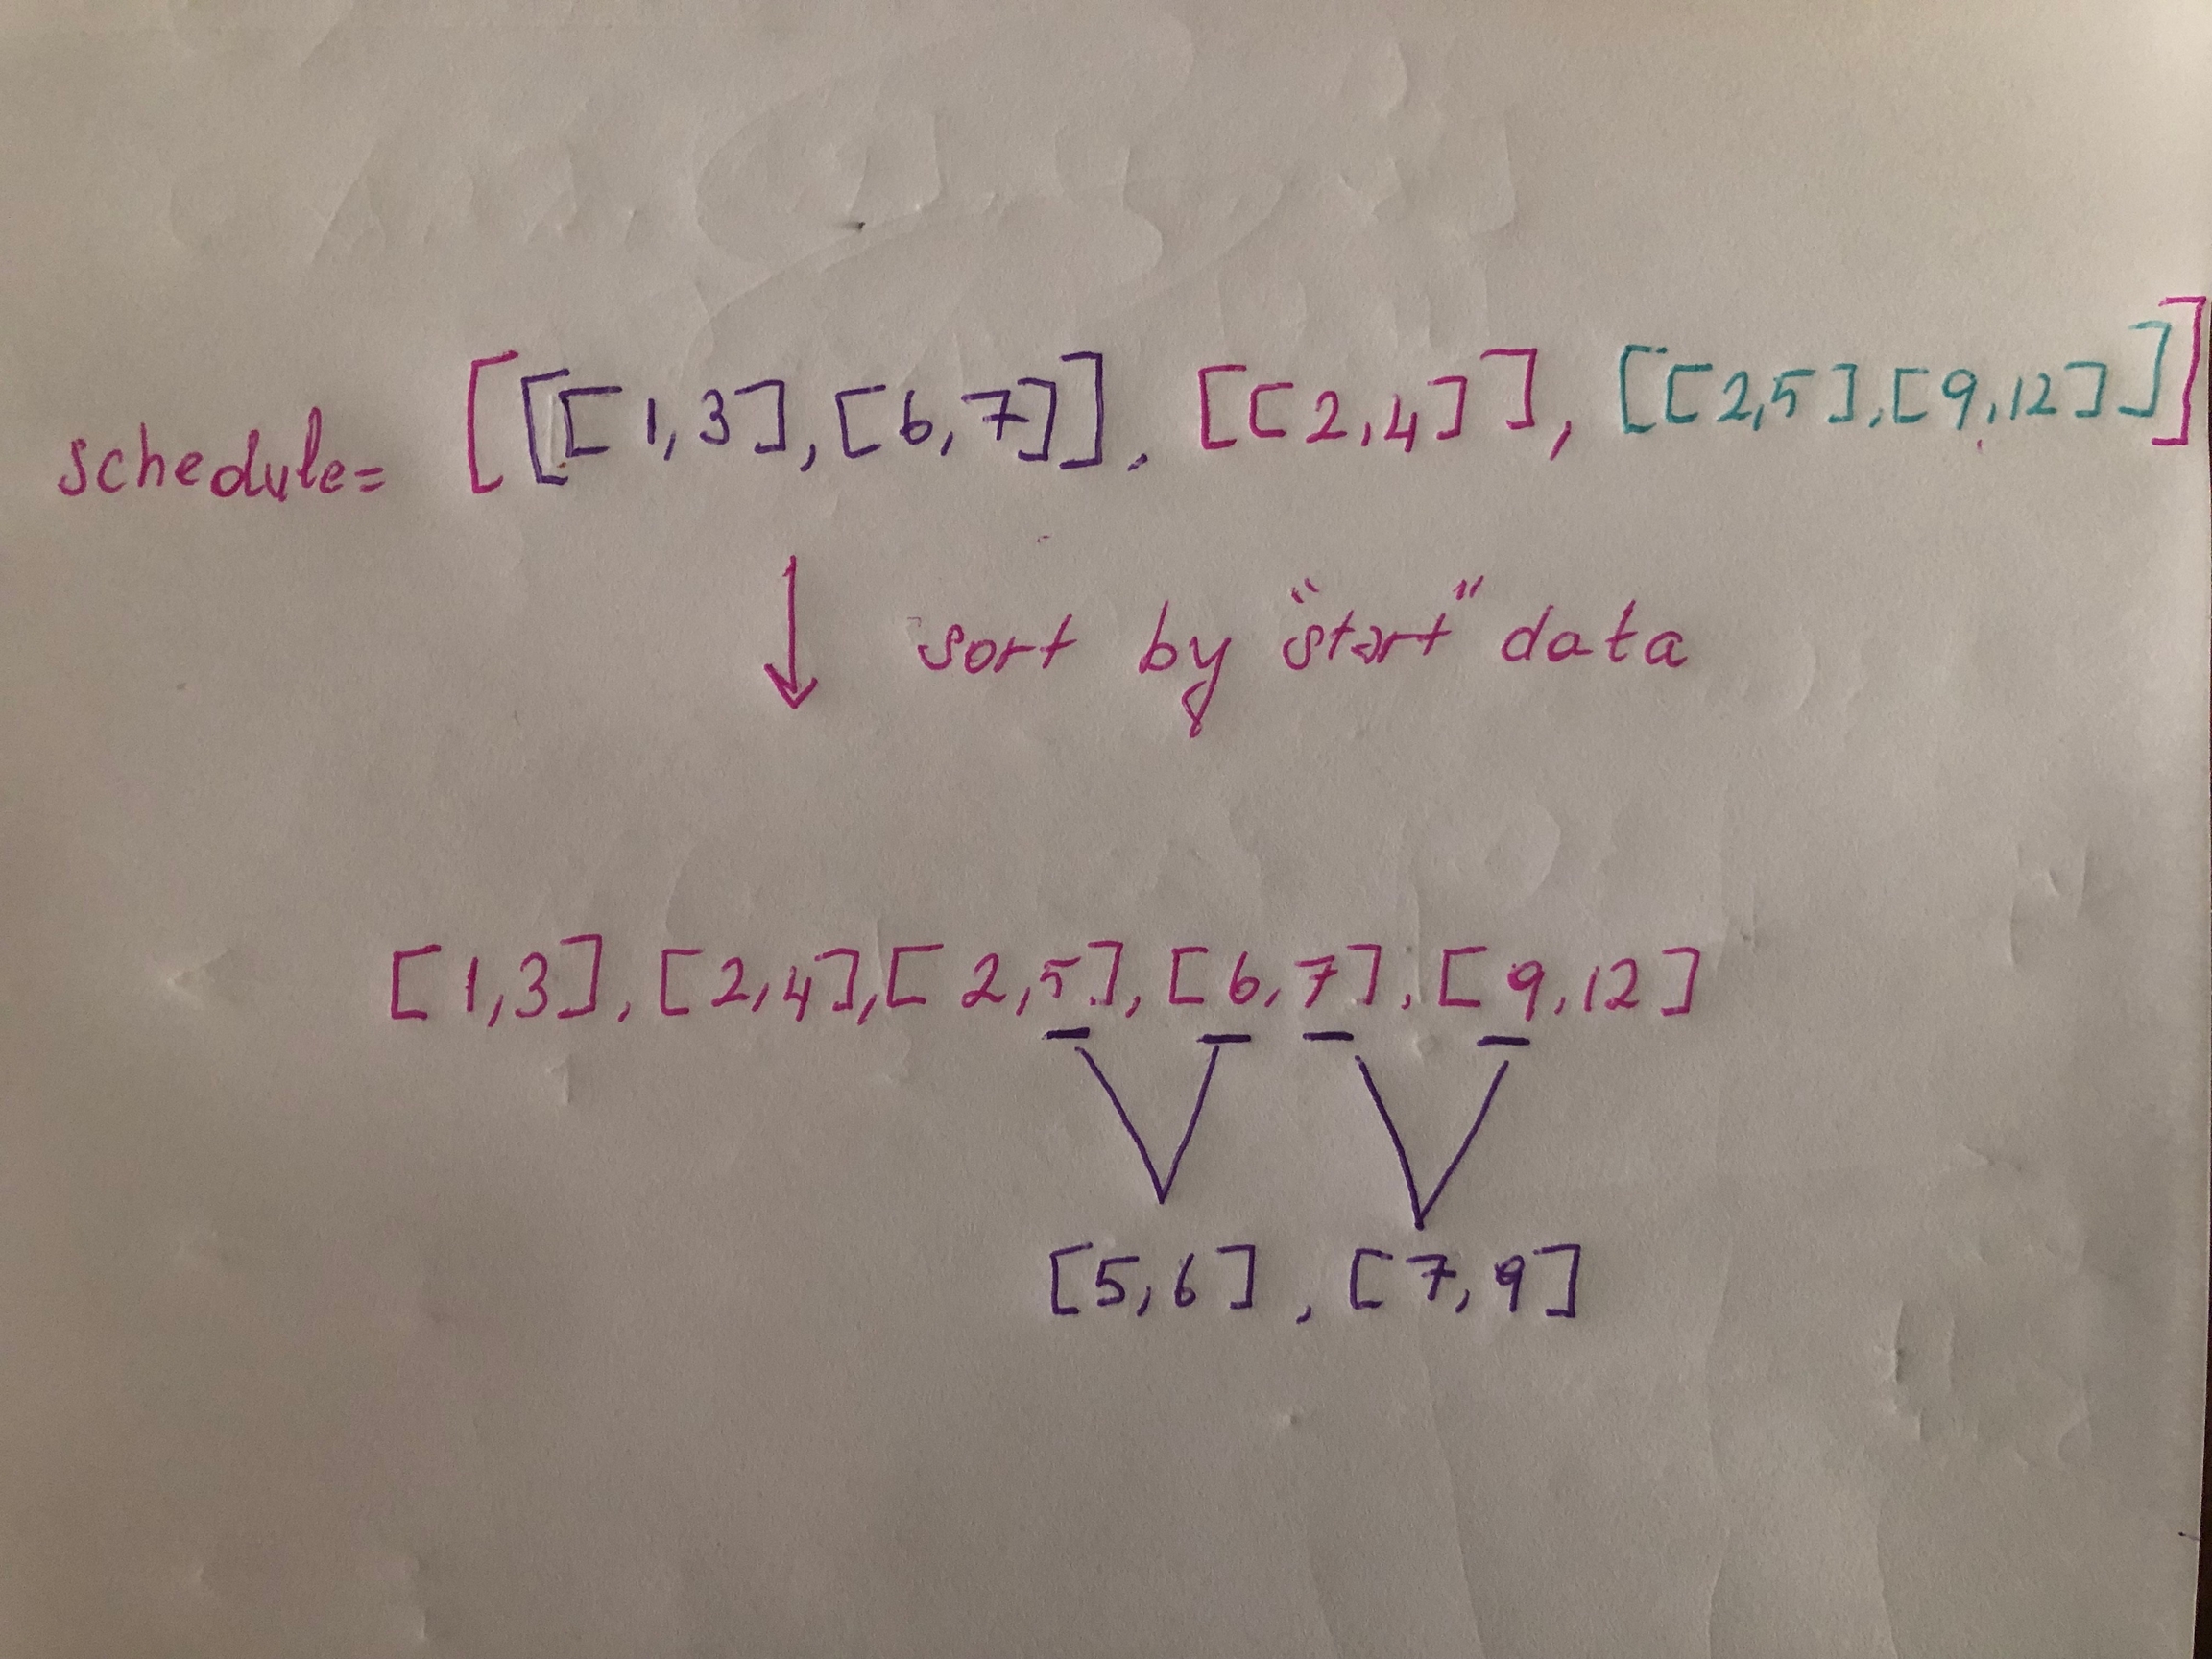 schedule= [[[1,3],[6,7]], [[2,4]], [[2,5],[9,12]]]
sort by "start" data
[1,3],[2,4],[2,5],[6,7],[9,12]
[5,6],[7,9]